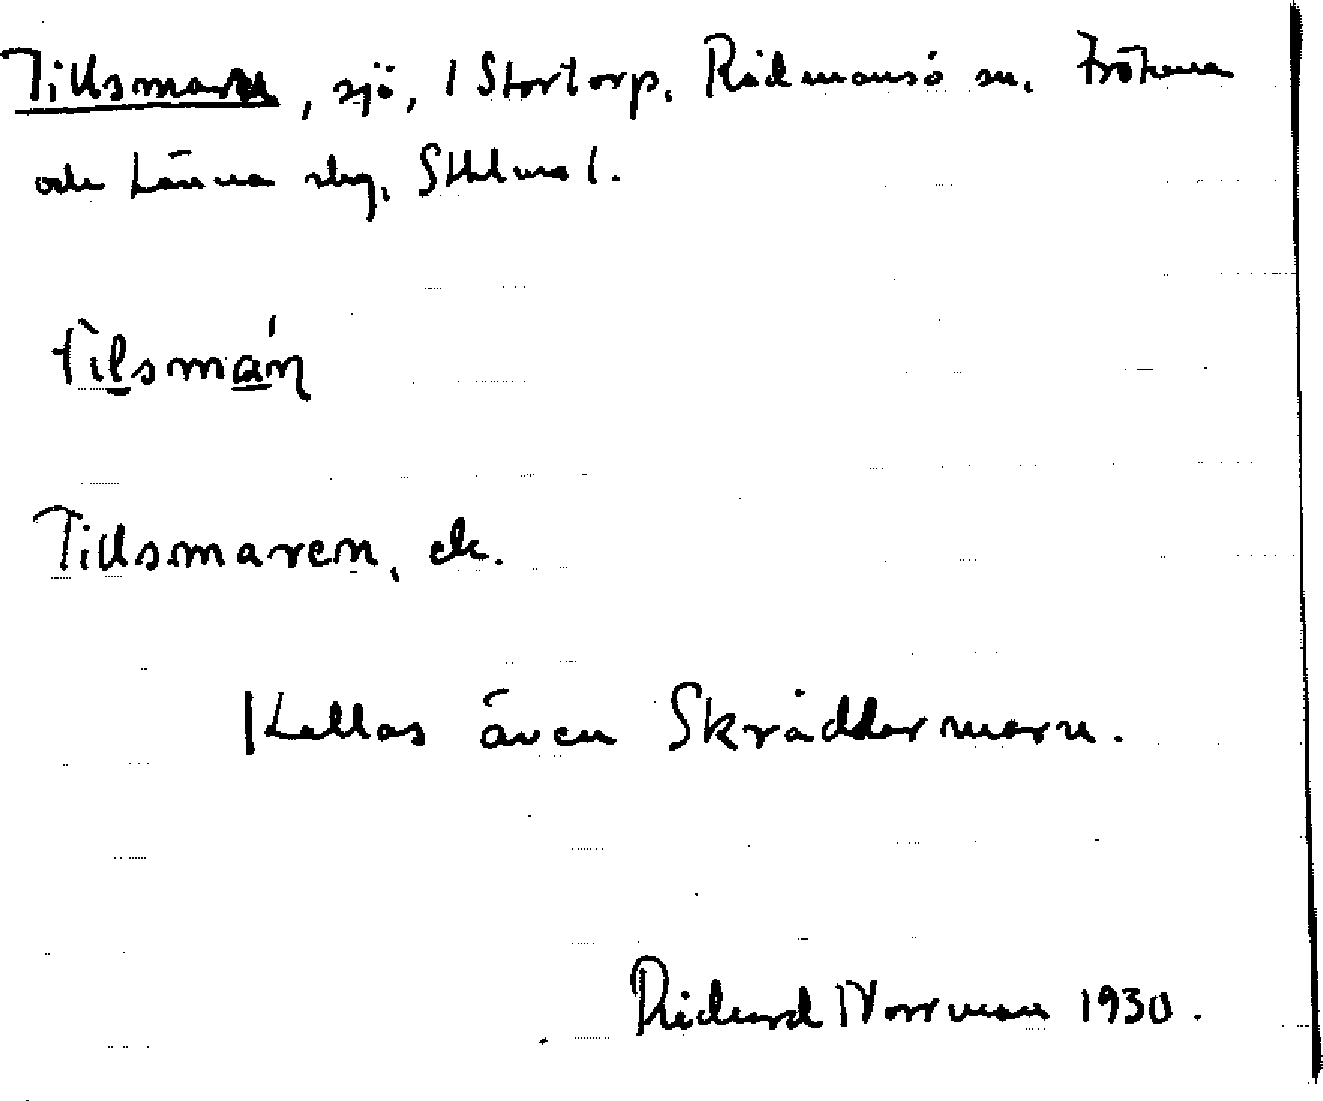 Tillsmaren, sjö, 1 Stortorp, Rådmansö sn, Frötuna
och Länna skg, Sthlms l.
tìlsmán
Tillsmaren, ek.
Kallas även Skräddarmarn.
Richard Norrman 1930.